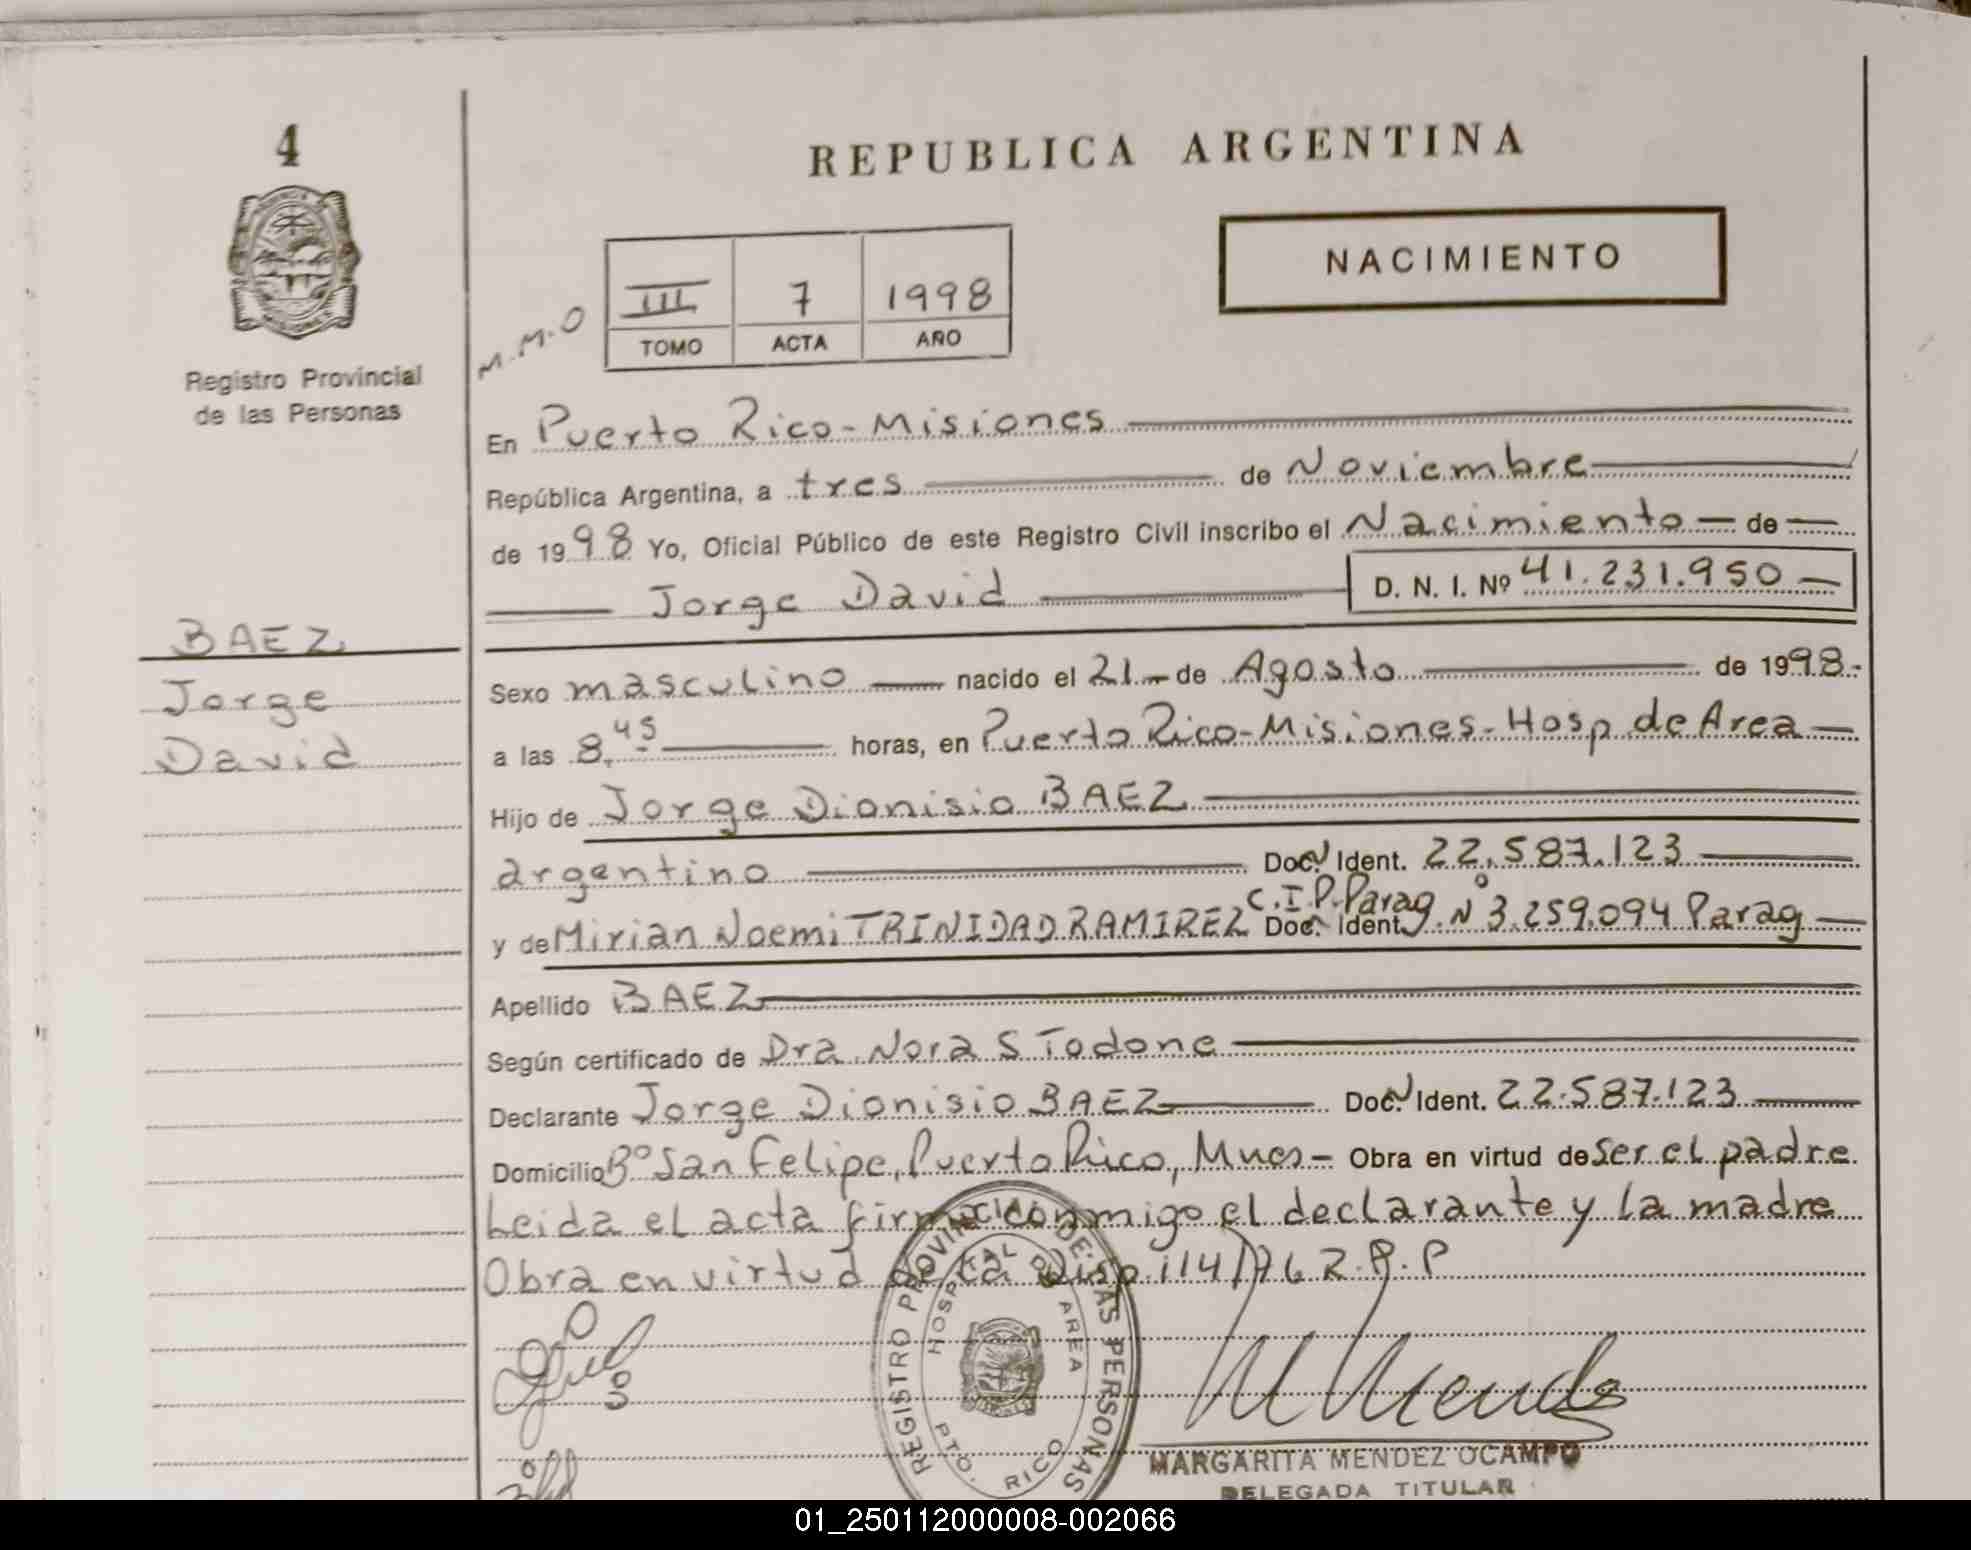 4
REPUBLICA ARGENTINA
NACIMIENTO
III 7 1998
TOMO ACTA AÑO
M.M.O
Registro Provincial
de las Personas
En Puerto Rico - Misiones
República Argentina, a tres de Noviembre
de 1998 Yo, Oficial Público de este Registro Civil inscribo el Nacimiento de
Jorge David D. N. I. Nº 41.231.950
BAEZ
Jorge
David
Sexo masculino nacido el 21 de Agosto de 1998.-
a las 8,45 horas, en Puerto Rico - Misiones - Hosp de Area
Hijo de Jorge Dionisio BAEZ
argentino Doc. Ident. 22.587.123
y de Mirian Noemi TRINIDAD RAMIREZ Doc. Ident. C.I.P. Parag. Nº 3.259.094 Parag
Apellido BAEZ
Según certificado de Dra. Nora S Todone
Declarante Jorge Dionisio BAEZ Doc. Ident. 22.587.123
Domicilio Bº San Felipe, Puerto Rico, Mnes - Obra en virtud de ser el padre
Leida el acta firma conmigo el declarante y la madre
Obra en virtud de la Disp 114/76 R.P.P
REGISTRO PROVINCIAL DE LAS PERSONAS
HOSPITAL DE AREA
PTO. RICO
MARGARITA MENDEZ OCAMPO
DELEGADA TITULAR
01_250112000008-002066